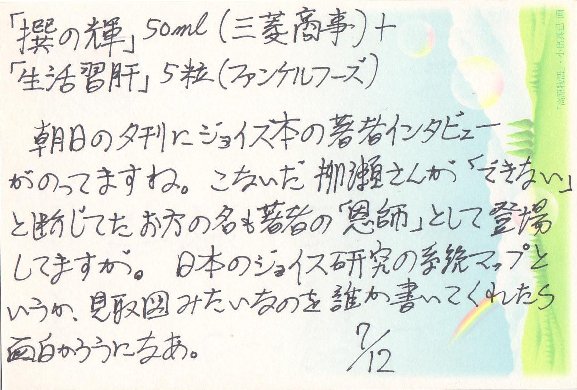 「撰の輝」50ml(三菱商事)+
「生活習肝」5粒(ファンケルフーズ)
朝日の夕刊にジョイス本の著者インタビュー
がのってますね。こないだ柳瀬さんが「できない」
と断じてたお方の名も著者の「恩師」として登場
してますが。日本のジョイス研究の系統マップと
いうか、見取図みたいなのを誰か書いてくれたら
面白かろうになあ。
7/12